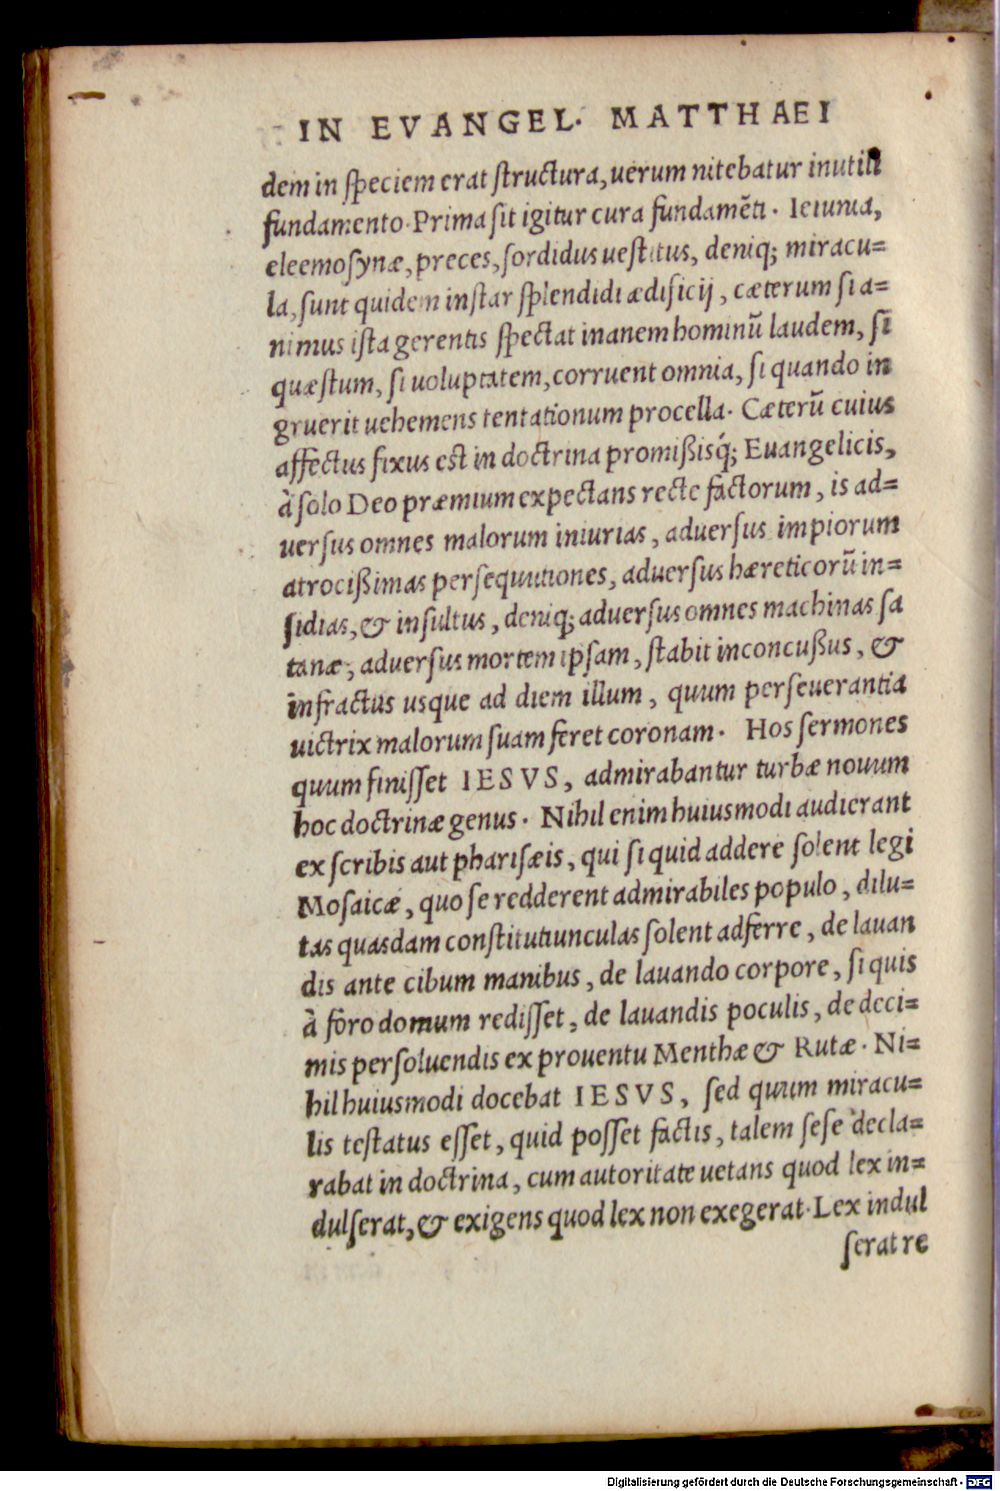 IN EVANGEL. MATTHAEI
dem in ſpeciem erat ſtructura, uerum nitebatur inutili
fundamento. Prima ſit igitur cura fundamēti. Ieiunia,
eleemoſynæ, preces, ſordidus ueſtitus, deniq; miracu=
la, ſunt quidem inſtar ſplendidi ædificij, cæterum ſi a=
nimus iſta gerentis ſpectat inanem hominū laudem, ſi
quæſtum, ſi uoluptatem, corruent omnia, ſi quando in
gruerit uehemens tentationum procella. Cæterū cuius
affectus fixus eſt in doctrina promißisq́; Euangelicis,
à ſolo Deo præmium expectans recte factorum, is ad=
uerſus omnes malorum iniurias, aduerſus impiorum
atrocißimas perſequutiones, aduerſus hæreticorū in=
ſidias, & inſultus, deniq; aduerſus omnes machinas ſa
tanæ, aduerſus mortem ipſam, ſtabit inconcußus, &
infractus usque ad diem illum, quum perſeuerantia
uictrix malorum ſuam feret coronam. Hos ſermones
quum finiſſet IESVS, admirabantur turbæ nouum
hoc doctrinæ genus. Nihil enim huiusmodi audierant
ex ſcribis aut phariſæis, qui ſi quid addere ſolent legi
Moſaicæ, quo ſe redderent admirabiles populo, dilu=
tas quasdam conſtitutiunculas ſolent adferre, de lauan
dis ante cibum manibus, de lauando corpore, ſi quis
à foro domum rediſſet, de lauandis poculis, de deci=
mis perſoluendis ex prouentu Menthæ & Rutæ. Ni=
hil huiusmodi docebat IESVS, ſed quum miracu=
lis teſtatus eſſet, quid poſſet factis, talem ſeſe decla=
rabat in doctrina, cum autoritate uetans quod lex in=
dulſerat, & exigens quod lex non exegerat. Lex indul
ſerat re
Digitalisierung gefördert durch die Deutsche Forschungsgemeinschaft - DFG